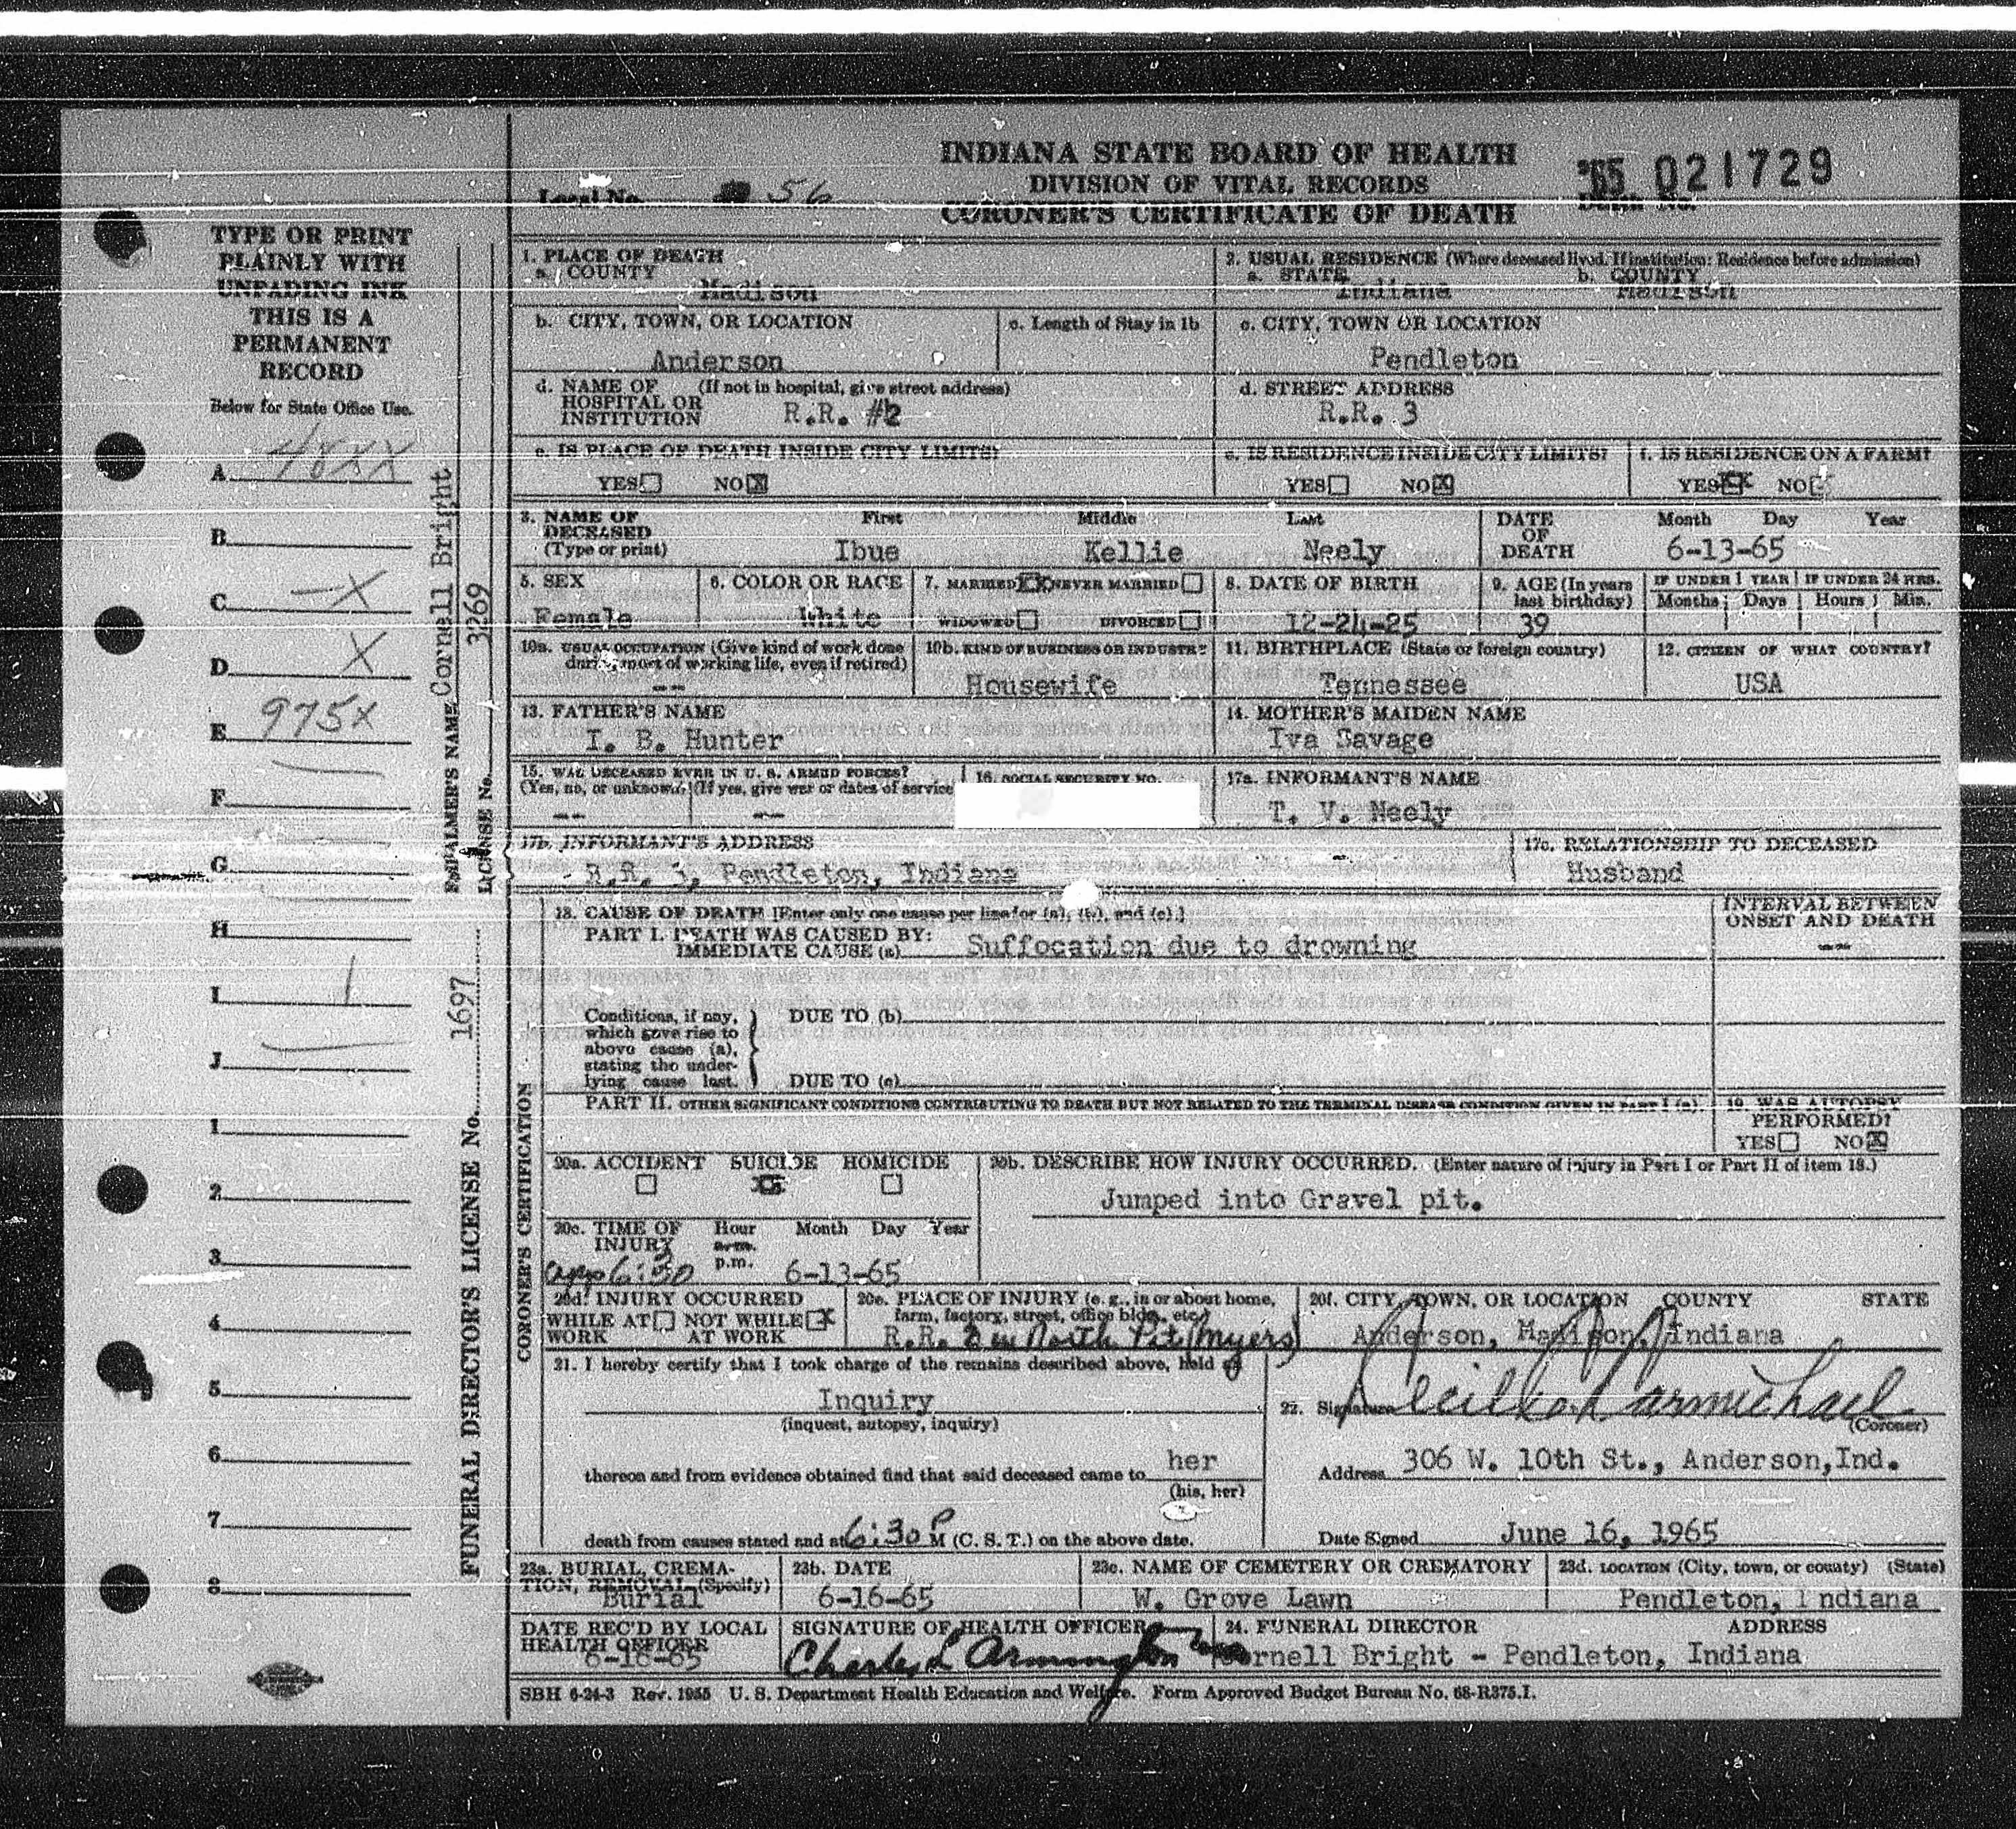 INDIANA STATE BOARD OF HEALTH
DIVISION OF VITAL RECORDS
CORONER'S CERTIFICATE OF DEATH
Local No. 56
'65 021729
Death No.
TYPE OR PRINT
PLAINLY WITH
UNFADING INK
THIS IS A
PERMANENT
RECORD
Below for State Office Use.
A 48XX
B
C —X
D X
E 975X
F
G
H
I 1
J
1
2
3
4
5
6
7
8
EMBALMER'S NAME Cornell Bright
LICENSE No. 3269
FUNERAL DIRECTOR'S LICENSE No. 1697
1. PLACE OF DEATH
a. COUNTY
Madison
2. USUAL RESIDENCE (Where deceased lived. If institution: Residence before admission)
a. STATE b. COUNTY
Indiana Madison
b. CITY, TOWN, OR LOCATION
Anderson
c. Length of Stay in 1b
c. CITY, TOWN OR LOCATION
Pendleton
d. NAME OF (If not in hospital, give street address)
HOSPITAL OR
INSTITUTION R.R. #2
d. STREET ADDRESS
R.R. 3
e. IS PLACE OF DEATH INSIDE CITY LIMITS?
YES NO X
e. IS RESIDENCE INSIDE CITY LIMITS?
YES NO X
f. IS RESIDENCE ON A FARM?
YES X NO
3. NAME OF DECEASED (Type or print)
First Middle Last
Ibue Kellie Neely
DATE OF DEATH
Month Day Year
6-13-65
5. SEX
Female
6. COLOR OR RACE
White
7. MARRIED X NEVER MARRIED
WIDOWED DIVORCED
8. DATE OF BIRTH
12-24-25
9. AGE (In years last birthday)
39
IF UNDER 1 YEAR IF UNDER 24 HRS.
Months Days Hours Min.
10a. USUAL OCCUPATION (Give kind of work done
during most of working life, even if retired)
--
10b. KIND OF BUSINESS OR INDUSTRY
Housewife
11. BIRTHPLACE (State or foreign country)
Tennessee
12. CITIZEN OF WHAT COUNTRY?
USA
13. FATHER'S NAME
I. B. Hunter
14. MOTHER'S MAIDEN NAME
Iva Savage
15. WAS DECEASED EVER IN U. S. ARMED FORCES?
(Yes, no, or unknown) (If yes, give war or dates of service
-- --
16. SOCIAL SECURITY NO.
17a. INFORMANT'S NAME
T. V. Neely
17b. INFORMANT'S ADDRESS
R.R. 3, Pendleton, Indiana
17c. RELATIONSHIP TO DECEASED
Husband
18. CAUSE OF DEATH [Enter only one cause per line for (a), (b), and (c).]
PART I. DEATH WAS CAUSED BY:
IMMEDIATE CAUSE (a) Suffocation due to drowning
INTERVAL BETWEEN
ONSET AND DEATH
--
Conditions, if any,
which gave rise to
above cause (a),
stating the under-
lying cause last.
DUE TO (b)
DUE TO (c)
PART II. OTHER SIGNIFICANT CONDITIONS CONTRIBUTING TO DEATH BUT NOT RELATED TO THE TERMINAL DISEASE CONDITION GIVEN IN PART I (a).
19. WAS AUTOPSY
PERFORMED?
YES NO X
20a. ACCIDENT SUICIDE HOMICIDE
20b. DESCRIBE HOW INJURY OCCURRED. (Enter nature of injury in Part I or Part II of item 18.)
Jumped into Gravel pit.
20c. TIME OF INJURY
Hour Month Day Year
a.m.
p.m.
app 6:30 6-13-65
20d. INJURY OCCURRED
WHILE AT WORK NOT WHILE AT WORK X
20e. PLACE OF INJURY (e. g., in or about home,
farm, factory, street, office bldg., etc.)
R.R. 2 North Pit (Myers)
20f. CITY, TOWN, OR LOCATION COUNTY STATE
Anderson, Madison, Indiana
21. I hereby certify that I took charge of the remains described above, held
Inquiry
(inquest, autopsy, inquiry)
thereon and from evidence obtained find that said deceased came to her
(his, her)
death from causes stated and at 6:30 P M (C. S. T.) on the above date.
22. Signature Carmichael
(Coroner)
Address 306 W. 10th St., Anderson,Ind.
Date Signed June 16, 1965
23a. BURIAL, CREMA-
TION, REMOVAL (Specify)
Burial
23b. DATE
6-16-65
23c. NAME OF CEMETERY OR CREMATORY
W. Grove Lawn
23d. LOCATION (City, town, or county) (State)
Pendleton, Indiana
DATE REC'D BY LOCAL
HEALTH OFFICER
6-16-65
SIGNATURE OF HEALTH OFFICER
Charles L Armington
24. FUNERAL DIRECTOR ADDRESS
Cornell Bright - Pendleton, Indiana
SBH 6-24-3 Rev. 1955 U. S. Department Health Education and Welfare. Form Approved Budget Bureau No. 68-R375.I.